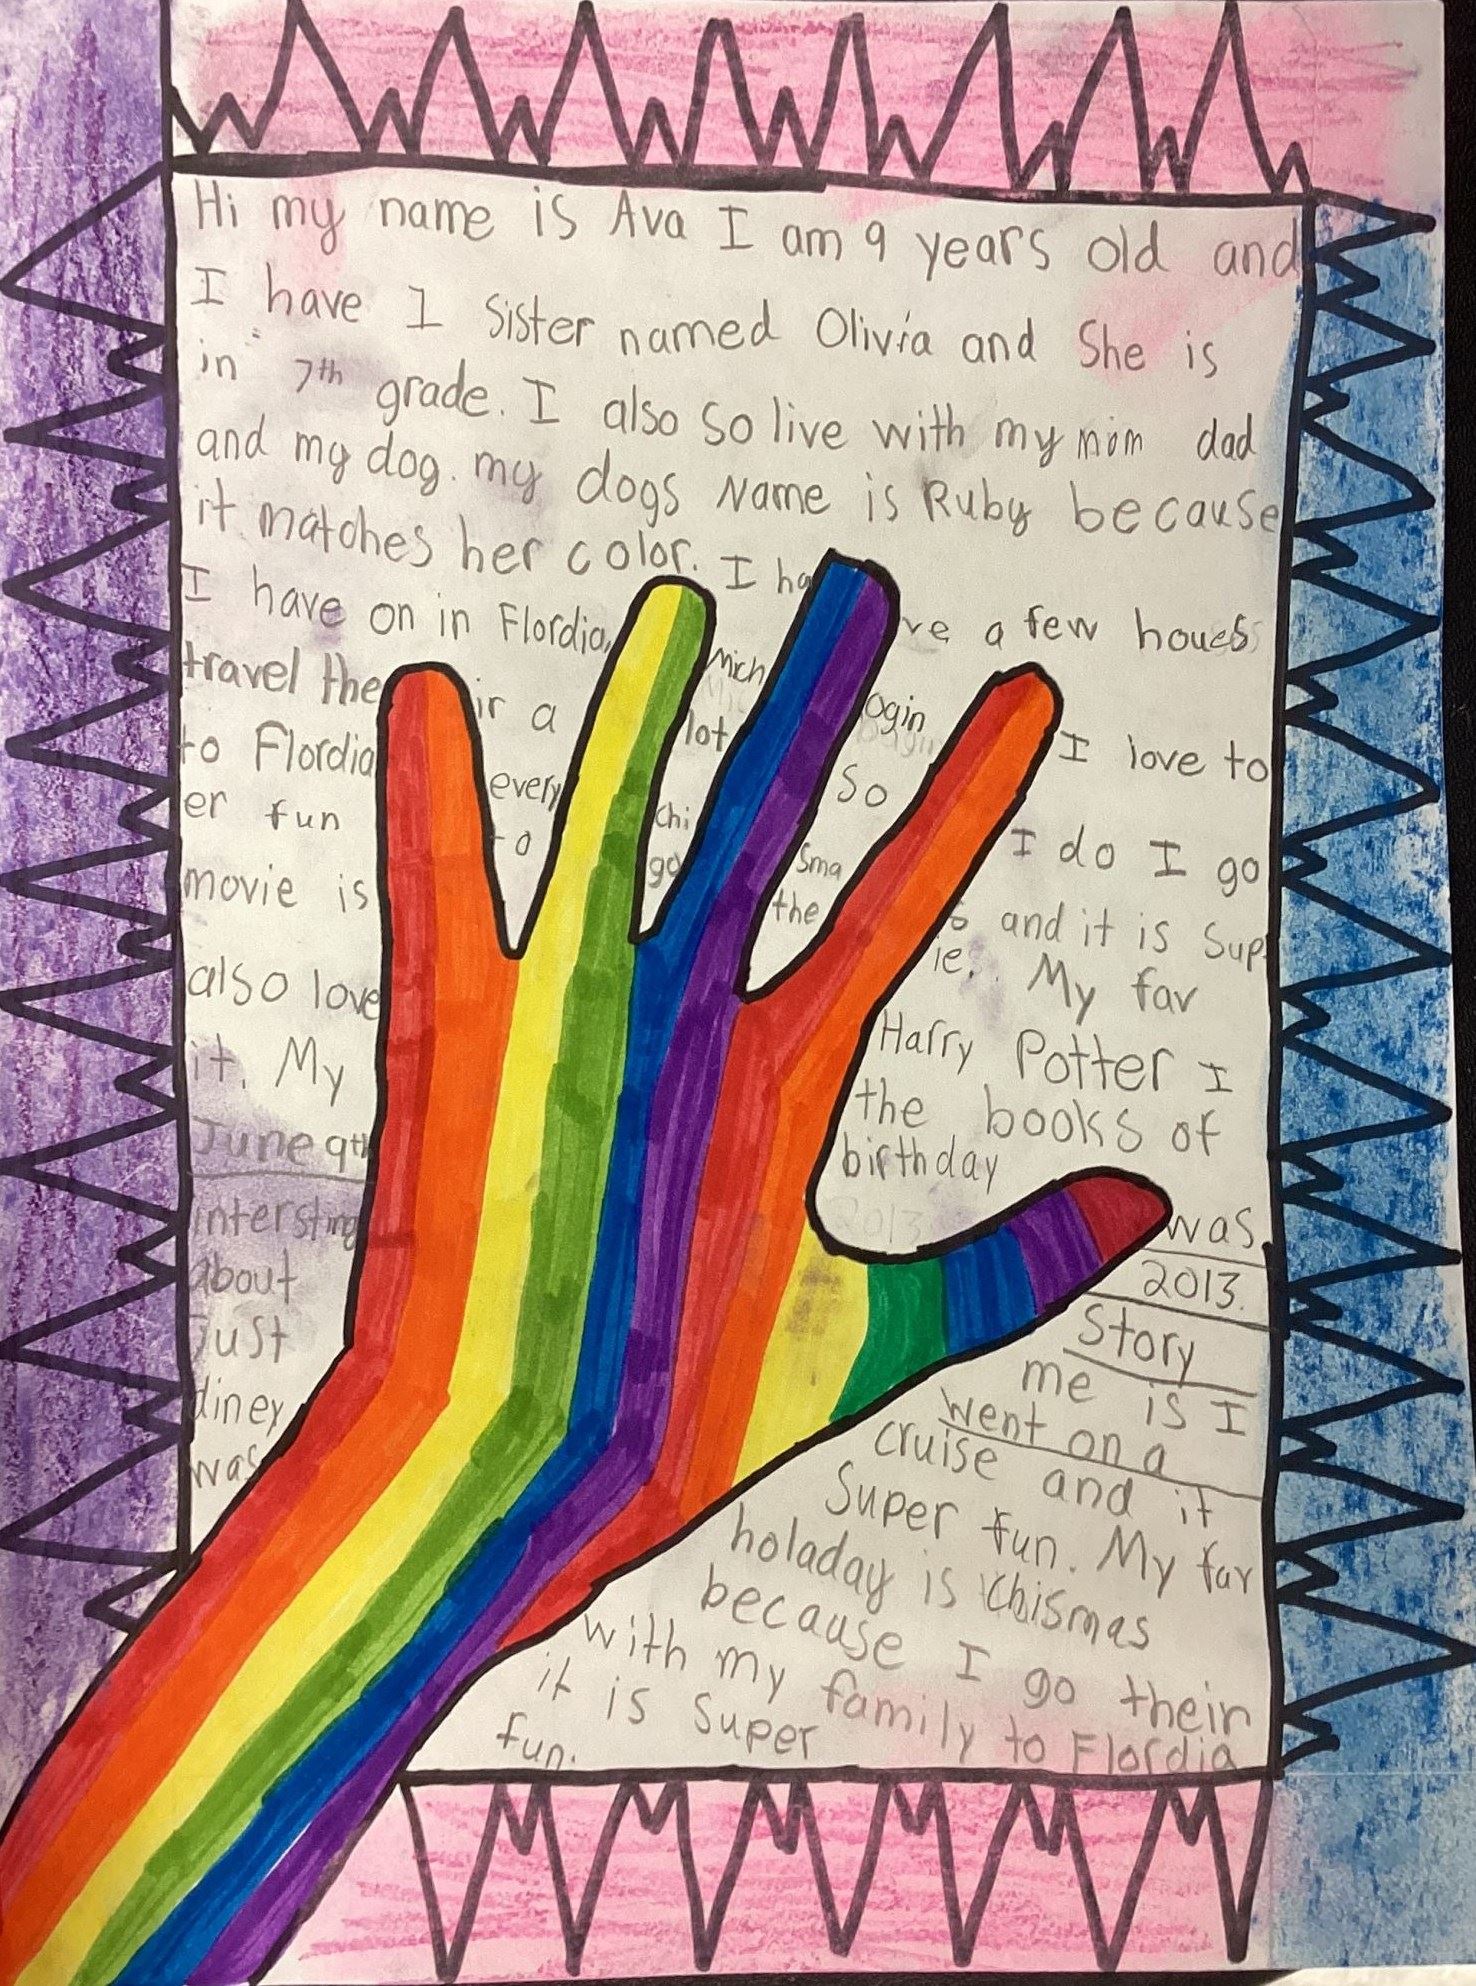 Hi my name is Ava I am 9 years old and
I have 1 Sister named Olivia and She is
in 7th grade. I also So live with my mom dad
and my dog. my dogs Name is Ruby because
it matches her color. I ha ve a few houess
I have on in Flordia, Mich ogin I love to
travel the ir a lot So I do I go
to Flordia every Chi Sma s and it is Sup
er fun to go the ie. My fav
movie is Harry Potter I
also love the books of
it. My birthday was
June 9th 2013 2013.
intersting Story
about me is I
Just went on a
diney cruise and it
was Super fun. My fav
holaday is Chismas
because I go their
with my family to Flordia
it is Super
fun.